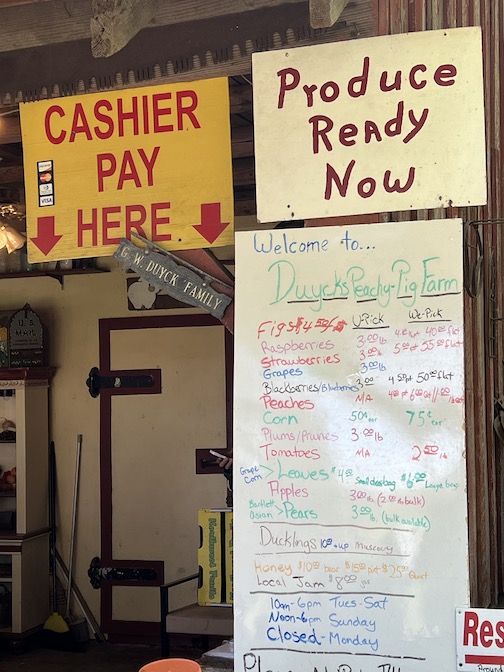 CASHIER
PAY
HERE
VISA
Produce
Ready
Now
G.W. DUYCK FAMILY
U.S.
MAIL
Welcome to...
Duyck's Peachy-Pig Farm
U-Pick We-Pick
Figs $4.50/
Raspberries 3.00 lb 40.00 flat
Strawberries 3.00 lb 5.00 pt 55.00 flat
Grapes 3.00 lb
Blackberries/Blueberries 3.00 4.50 pt 50.00 flat
Peaches N/A
Corn 50¢ ear 75¢ ear
Plums/Prunes 3.00 lb
Tomatoes N/A 2.50 lb
Grape
Corn > Leaves $4.00 small dessbag $6.00 Large bag
Apples 3.00 lb. (2.00 lb bulk)
Bartlett
Asian > Pears 3.00 lb. (bulk available)
Ducklings 10.00 + up Muscovy
Honey $10.00 bear $15.00 pint $25.00 Quart
Local Jam $8.00
10am-6pm Tues-Sat
Noon-6pm Sunday
Closed-Monday
Res
Around